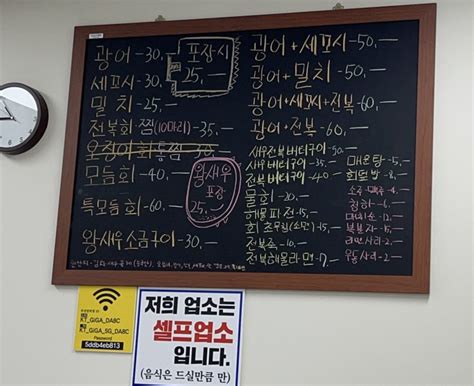 광어 - 30. -
세꼬시 - 30. -
밀치 - 25. -
전복회·찜(10마리) - 35. -
오징어회·통찜 - 30
모듬회 - 40. -
특모듬회 - 60. -
왕새우소금구이 - 30. -
포장시
25. -
왕새우
포장
25. -
광어+세꼬시 - 50. -
광어+밀치 - 50. -
광어+세꼬시+전복 - 60. -
광어+전복 - 60. -
새우전복버터구이 - 50. -
새우버터구이 - 35. -
전복버터구이 - 40
물회 - 20. -
해물파전 - 15. -
회초무침(소면) - 15. -
전복죽 - 10. -
전복해물라면 - 7. -
매운탕 - 5. -
회덮밥 - 8. -
소주·맥주 - 4. -
청하 - 6. -
매화수 - 12. -
복분자 - 15. -
라면사리 - 2. -
우동사리 - 2. -
KT_GiGA_DA8C
KT_GiGA_5G_DA8C
Password
5ddb4eb813
저희 업소는
셀프업소
입니다.
(음식은 드실만큼 만)